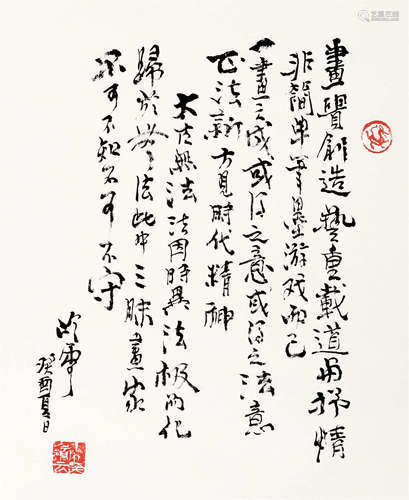 畫貴創造藝重載道用抒情
非簡單筆墨游戏而已
一畫之成或得之意或得之法意
正法新方見時代精神
太古無法法因時異法極而化
歸於無法此中三昧畫家
不可不知不可不守
癸酉夏日